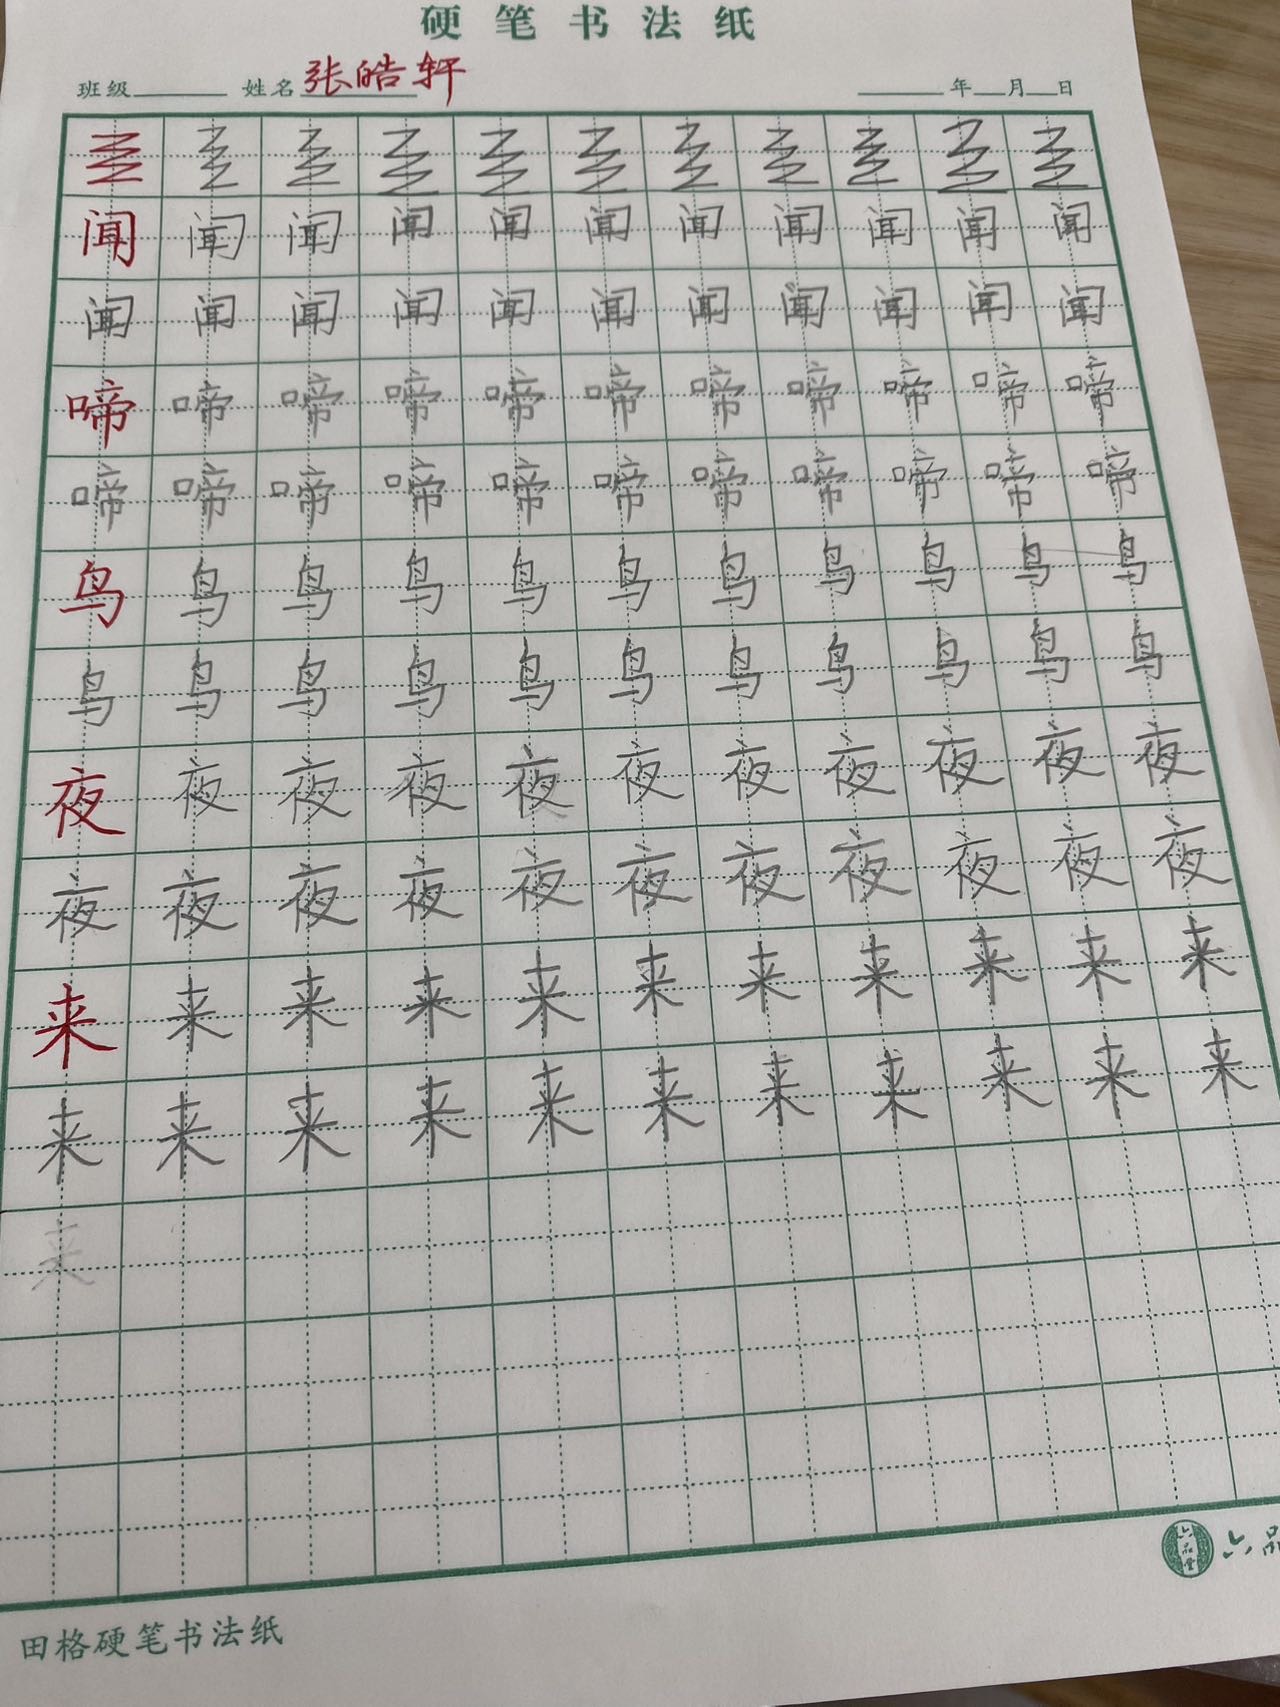 硬笔书法纸
班级 姓名 张皓轩 年 月 日
闻 闻 闻 闻 闻 闻 闻 闻 闻 闻 闻
闻 闻 闻 闻 闻 闻 闻 闻 闻 闻 闻
啼 啼 啼 啼 啼 啼 啼 啼 啼 啼 啼
啼 啼 啼 啼 啼 啼 啼 啼 啼 啼 啼
鸟 鸟 鸟 鸟 鸟 鸟 鸟 鸟 鸟 鸟 鸟
鸟 鸟 鸟 鸟 鸟 鸟 鸟 鸟 鸟 鸟 鸟
夜 夜 夜 夜 夜 夜 夜 夜 夜 夜 夜
夜 夜 夜 夜 夜 夜 夜 夜 夜 夜 夜
来 来 来 来 来 来 来 来 来 来 来
来 来 来 来 来 来 来 来 来 来 来
来
六品堂 六品
田格硬笔书法纸